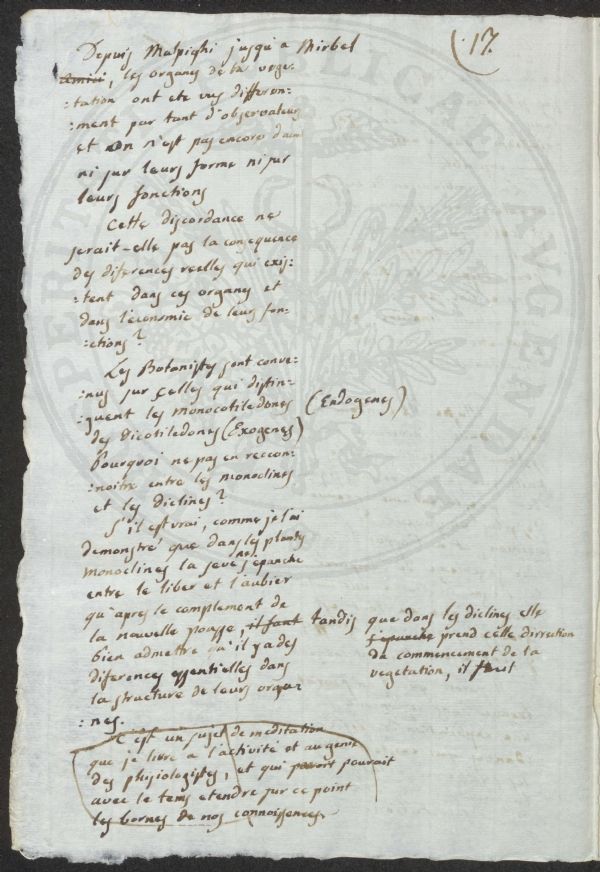 17.
Depuis Malpighi jusqu'a Mirbel
Amici, les organes de la vege-
:tation ont ete vus differen-
:ment par tant d'observateurs
et on n'est pas encore d'accord
ni sur leurs forme ni sur
leurs fonctions
Cette discordance ne
serait-elle pas la consequence
des diferences reelles qui exis:
:tent dans ces organes et
dans l'economie de leurs fon-
:ctions?
Les Botanistes sont conve-
:nus sur celles qui distin-
:guent les monocotiledones (Endogenes)
des dicotiledones (Exogenes)
Pourquoi ne pas en reccon-
:noitre entre les monoclines
et les diclines?
S'il est vrai, comme je l'ai
demonstré que dans les plantes
monoclines la seve ne s'epanche
entre le liber et l'aubier
qu'apres le complement de
la nouvelle pousse, il faut tandis que dans les diclines elle
s'epanche prend cette dirrection
du commencement de la
vegetation, il faut
bien admettre qu'il y a des
diferences essentielles dans
la structure de leurs orga-
:nes.
C'est un sujet de meditation
que je livre a l'activité et au genie
des physiologistes, et qui pouvait
avec le tems etendre sur ce point
les bornes de nos connoissences.
PERITURAE PUBLICAE AUGENDA